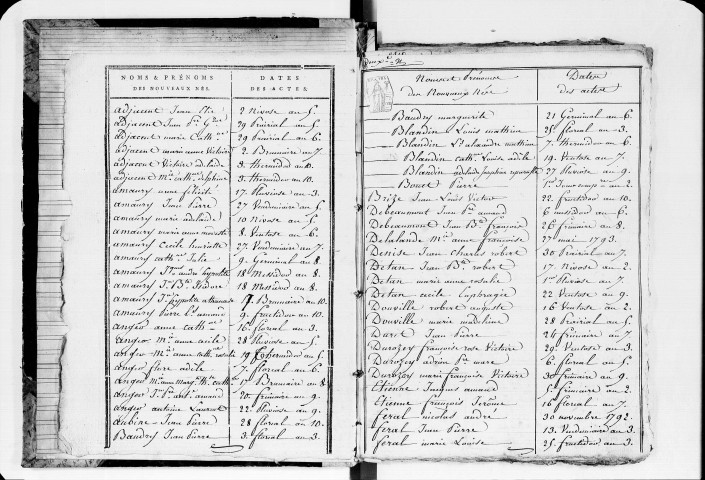 NOMS & PRÉNOMS DATES
DES NOUVEAUX NÉS. DES ACTES.
adjacent Jean 2 Nivose an 5.
adjacent Jean 29 Prairial an 5.
adjacent marie Cath.ne 29 Prairial an 6.
adjacent marie anne Victoire 2 Brumaire an 7.
adjacent Victoire adelaide 3 thermidor an 10.
adjacent M.e cath.e delphine 3 thermidor an 10.
amaury anne félicité 17 Pluviose an 3.
amaury Jean Pierre 27 Vendemiaire an 5.
amaury marie adelaide 10 Nivose an 5.
amaury marie anne 8 Ventose an 6.
amaury Cecile henriette 27 Vendemiaire an 7.
amaury cath.ne Julie 9 Germinal an 8.
amaury andre hypolite 18 Messidor an 8.
amaury Isidore 18 Messidor an 8.
amaury hypolite 17 Brumaire an 10.
amaury Pierre 9 fructidor an 10.
anger anne cath.ne 16 floréal an 3.
anger M.e anne cecile 28 Pluviose an 5.
anger M.e anne cath. rosalie 19 an 5.
anger flore adele 7 floréal an 6.
anger M.e anne Marg.te 17 Brumaire an 8.
anger amand 20 frimaire an 9.
anger antoine Laurent 22 Pluviose an 9.
aubine Jean Pierre 28 floréal an 10.
Baudry Jean Pierre 3 floréal an 3.
Noms et Prenoms Dates
des Nouveaux Nés des actes
Baudry marguerite 21 Germinal an 6.
Blandin Louis mathieu 25 floréal an 3.
Blandin L.s alexandre mathieu 7 thermidor an 6.
Blandin cath. Louise adèle 19 Ventose an 7.
Blandin adelaide Josephine 27 Pluviose an 9.
Bouet Pierre an 2.
Brize Jean Louis Victor 22 fructidor an 10.
Debeaumont Jean amand 6 messidor an 6.
Debeaumont Jean B.te françois 26 frimaire an 8.
Delalande M.e anne françoise 27 mai 1793.
Denise Jean Charles robert 30 Prairial an 7.
Détan Jean B.te robert 17 Nivose an 2.
Détan marie anne rosalie 1.er Pluviose an 7.
Détan cecile Euphrasie 22 Ventose an 9.
Douville robert auguste 16 Ventose an 2.
Douville marie madeleine 28 Prairial an 5.
Duret Jean Pierre 24 frimaire an 7.
Durozey françoise rose Victoire 29 Ventose an 3.
Durozey adrien marc 6 floréal an 5.
Durozey marie françoise Victoire 30 frimaire an 9.
Etienne Jacques amand 5 frimaire an 2.
Etienne françois Jerôme 16 floréal an 7.
feral nicolas andré 30 novembre 1792.
feral Jean Pierre 13 Vendemiaire an 3.
feral marie Louise 25 fructidor an 3.